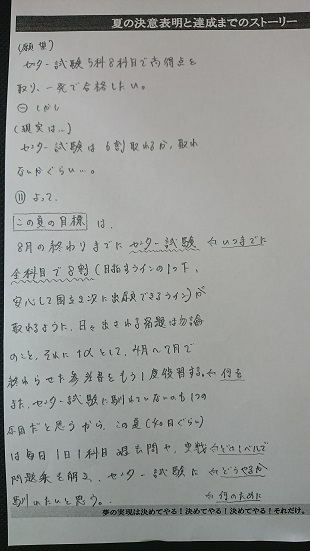 夏の決意表明と達成までのストーリー
(願望)
センター試験5科8科目で高得点を
取り、一発で合格したい。
㊀ しかし
(現実は…)
センター試験は6割取れるか、取れ
ないかぐらい…。
⑪ よって、
この夏の目標 は、
8月の終わりまでに センター試験 ← いつまでに
全科目で8割(目指すラインの1つ下、
安心して国立2次に出願できるライン)が
取れるように、日々出される宿題は勿論
のこと、それに+αとして、4月〜7月で
終わらせた参考書をもう1度復習する。← 何を
また、センター試験に馴れていないのも1つの
原因だと思うから、この夏(40日ぐらい)
は毎日1日1科目過去問や、実戦 ← どのレベルで
問題集を解き、センター試験に ← どうやるか
馴れたいと思う。 ← 何のために
夢の実現は決めてやる!決めてやる!決めてやる!それだけ。